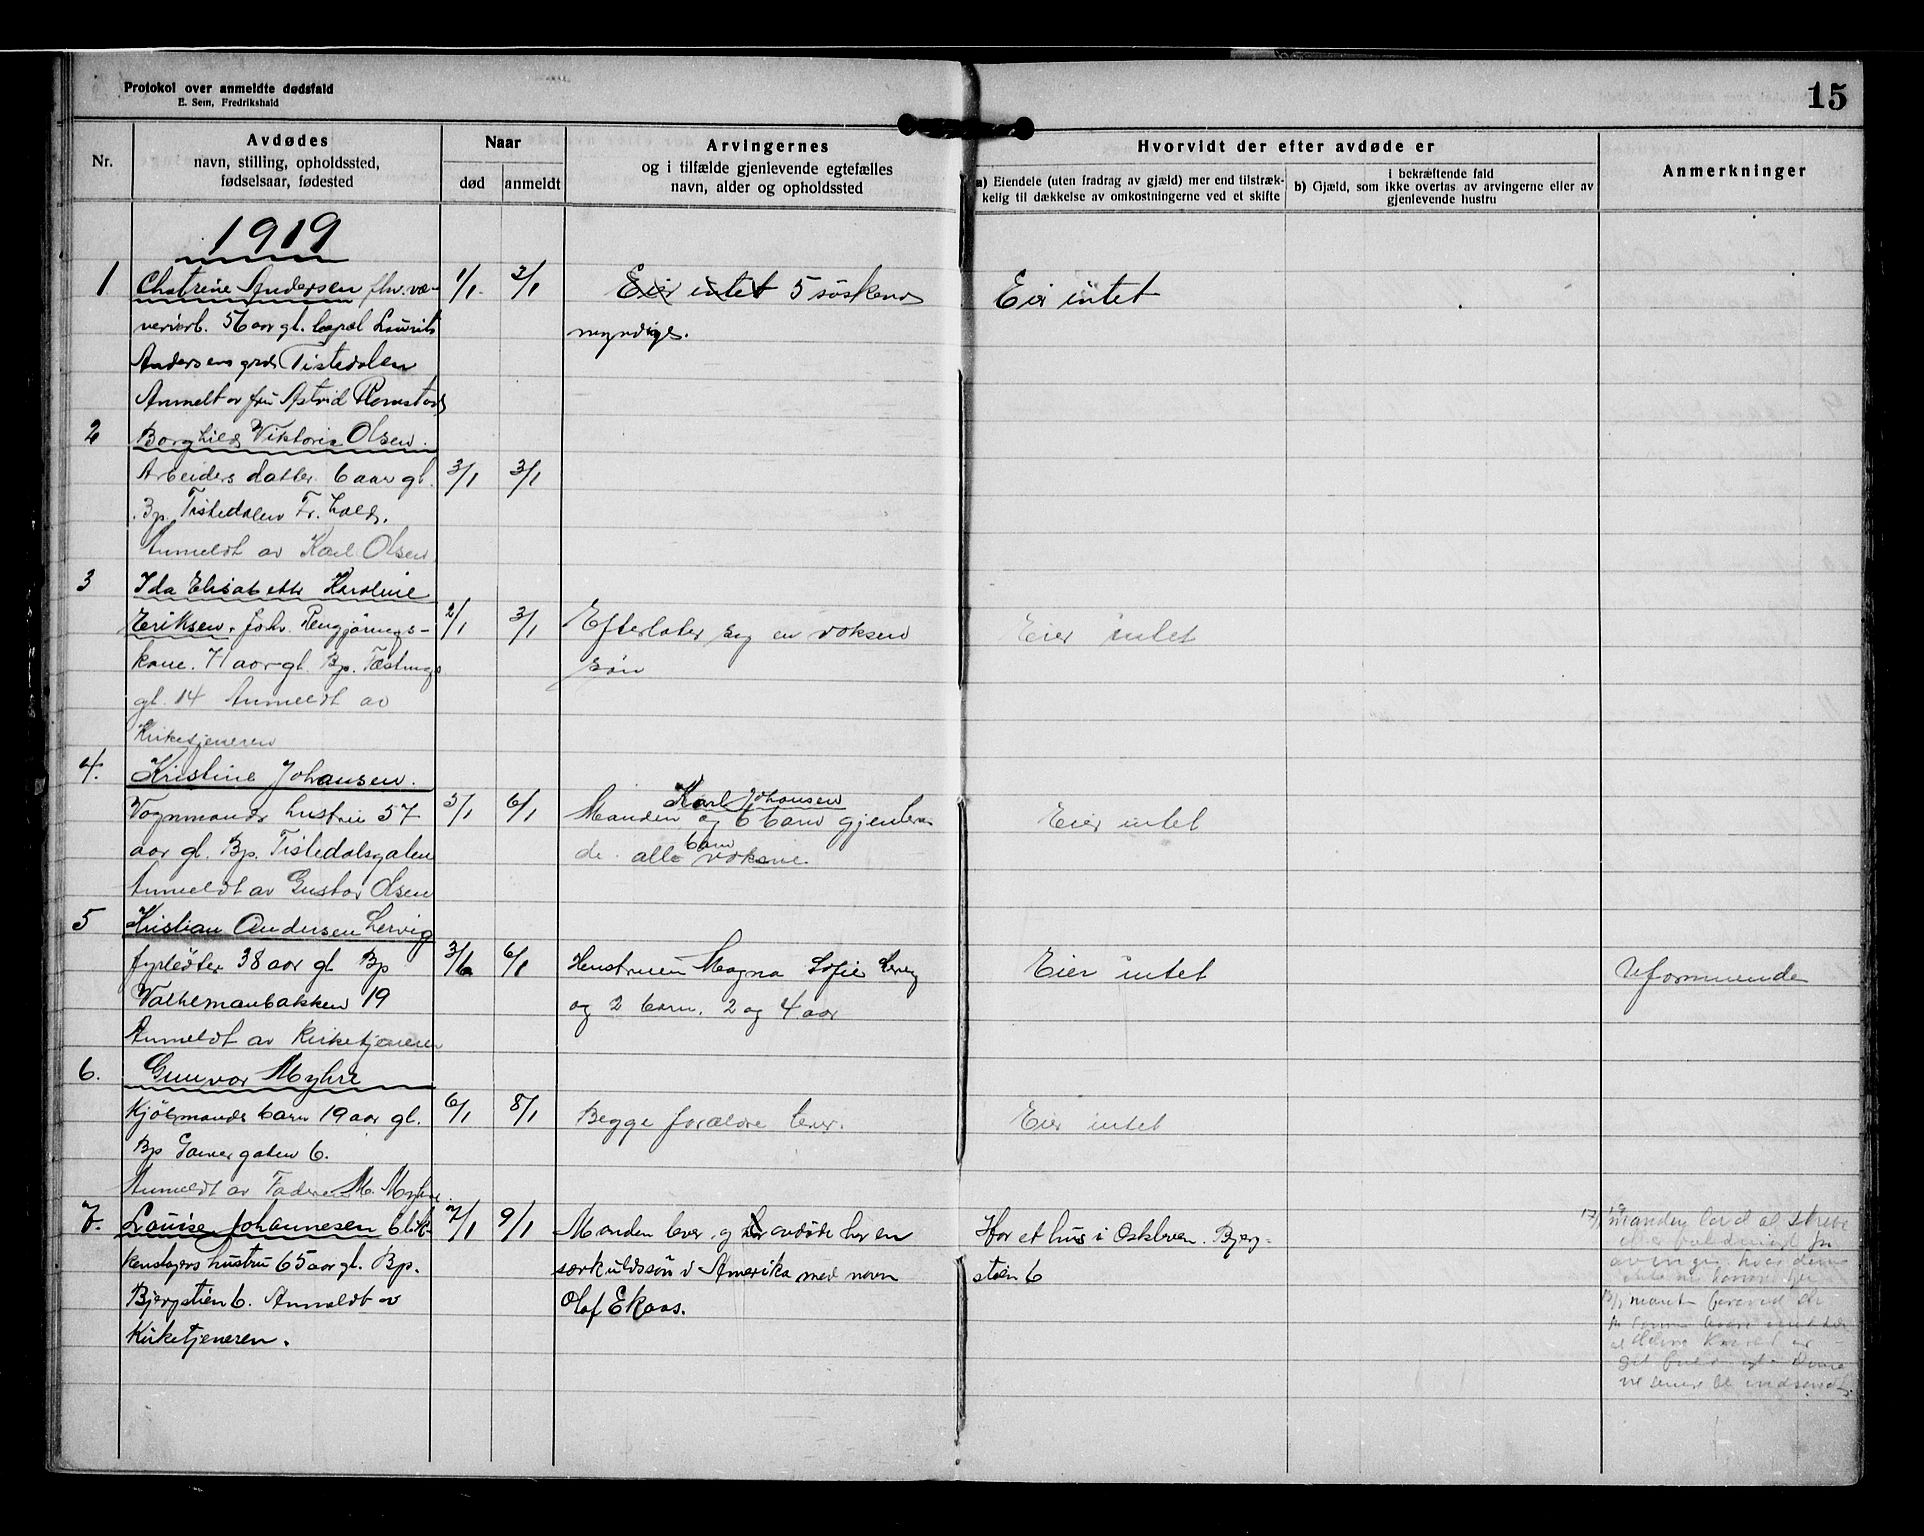 Protokol over anmeldte dødsfald
E. Sem, Fredrikshald
15
Nr.
Avdødes
navn, stilling, opholdssted,
fødselsaar, fødested
Naar
død
anmeldt
Arvingernes
og i tilfælde gjenlevende egtefælles
navn, alder og opholdssted
Hvorvidt der efter avdøde er
a) Eiendele (uten fradrag av gjæld) mer end tilstræk-
kelig til dækkelse av omkostningerne ved et skifte
i bekræftende fald
b) Gjæld, som ikke overtas av arvingerne eller av
gjenlevende hustru
Anmerkninger
1919
1 Chatrine Andersen fhv. væ- 1/1 3/1 Eier intet 5 søskend Eier intet
veriarb. 56 aar gl. Laurits myndige.
Andersens grd. Tistedalen
Anmelt av fru Astrid
2 Borghild Viktoria Olsen.
Arbeiders datter 6 aar gl. 3/1 3/1
Bp. Tistedalen Fr.hald.
Anmeldt av Karl Olsen
3 Ida Elisabeth Karoline
Eriksen. fhv. Rengjørings- 2/1 3/1 Efterlater sig en voksen Eier intet
kone. 71 aar gl. Bp. Fæstnings søn
gt. 14 Anmeldt av
Kirketjeneren
4. Kristine Johansen.
Karl Johansen
Vognmands hustru 57 5/1 6/1 Manden og 6 barn gjenleven- Eier intet
aar gl. Bp. Tistedalsgaten de. alle barn voksne.
Anmeldt av Gustav Olsen
5 Kristian Andersen Lervig
fyrbøter 38 aar gl Bp 3/1 6/1 Hustruen Magna Sofie Lervig Eier intet Uformuende
Valdemarbakken 19 og 2 barn. 2 og 4 aar
Anmeldt av Kirketjeneren
6. Gunvor Myhre
Kjøbmands barn 19 aar gl. 6/1 8/1 Begge forældre lever. Eier intet
Bp gaten 6.
Anmeldt av Faderen M. Myhre.
7. Lovise Johannesen blik- 7/1 9/1 Manden lever, og avdøde har en Har et hus i Oskleven. Bjerg-
kenslagers hustru 65 aar gl. Bp. særkuldssøn i Amerika med navn stien 6
Bjergstien 6. Anmeldt av Olaf Ekaas.
Kirketjeneren.